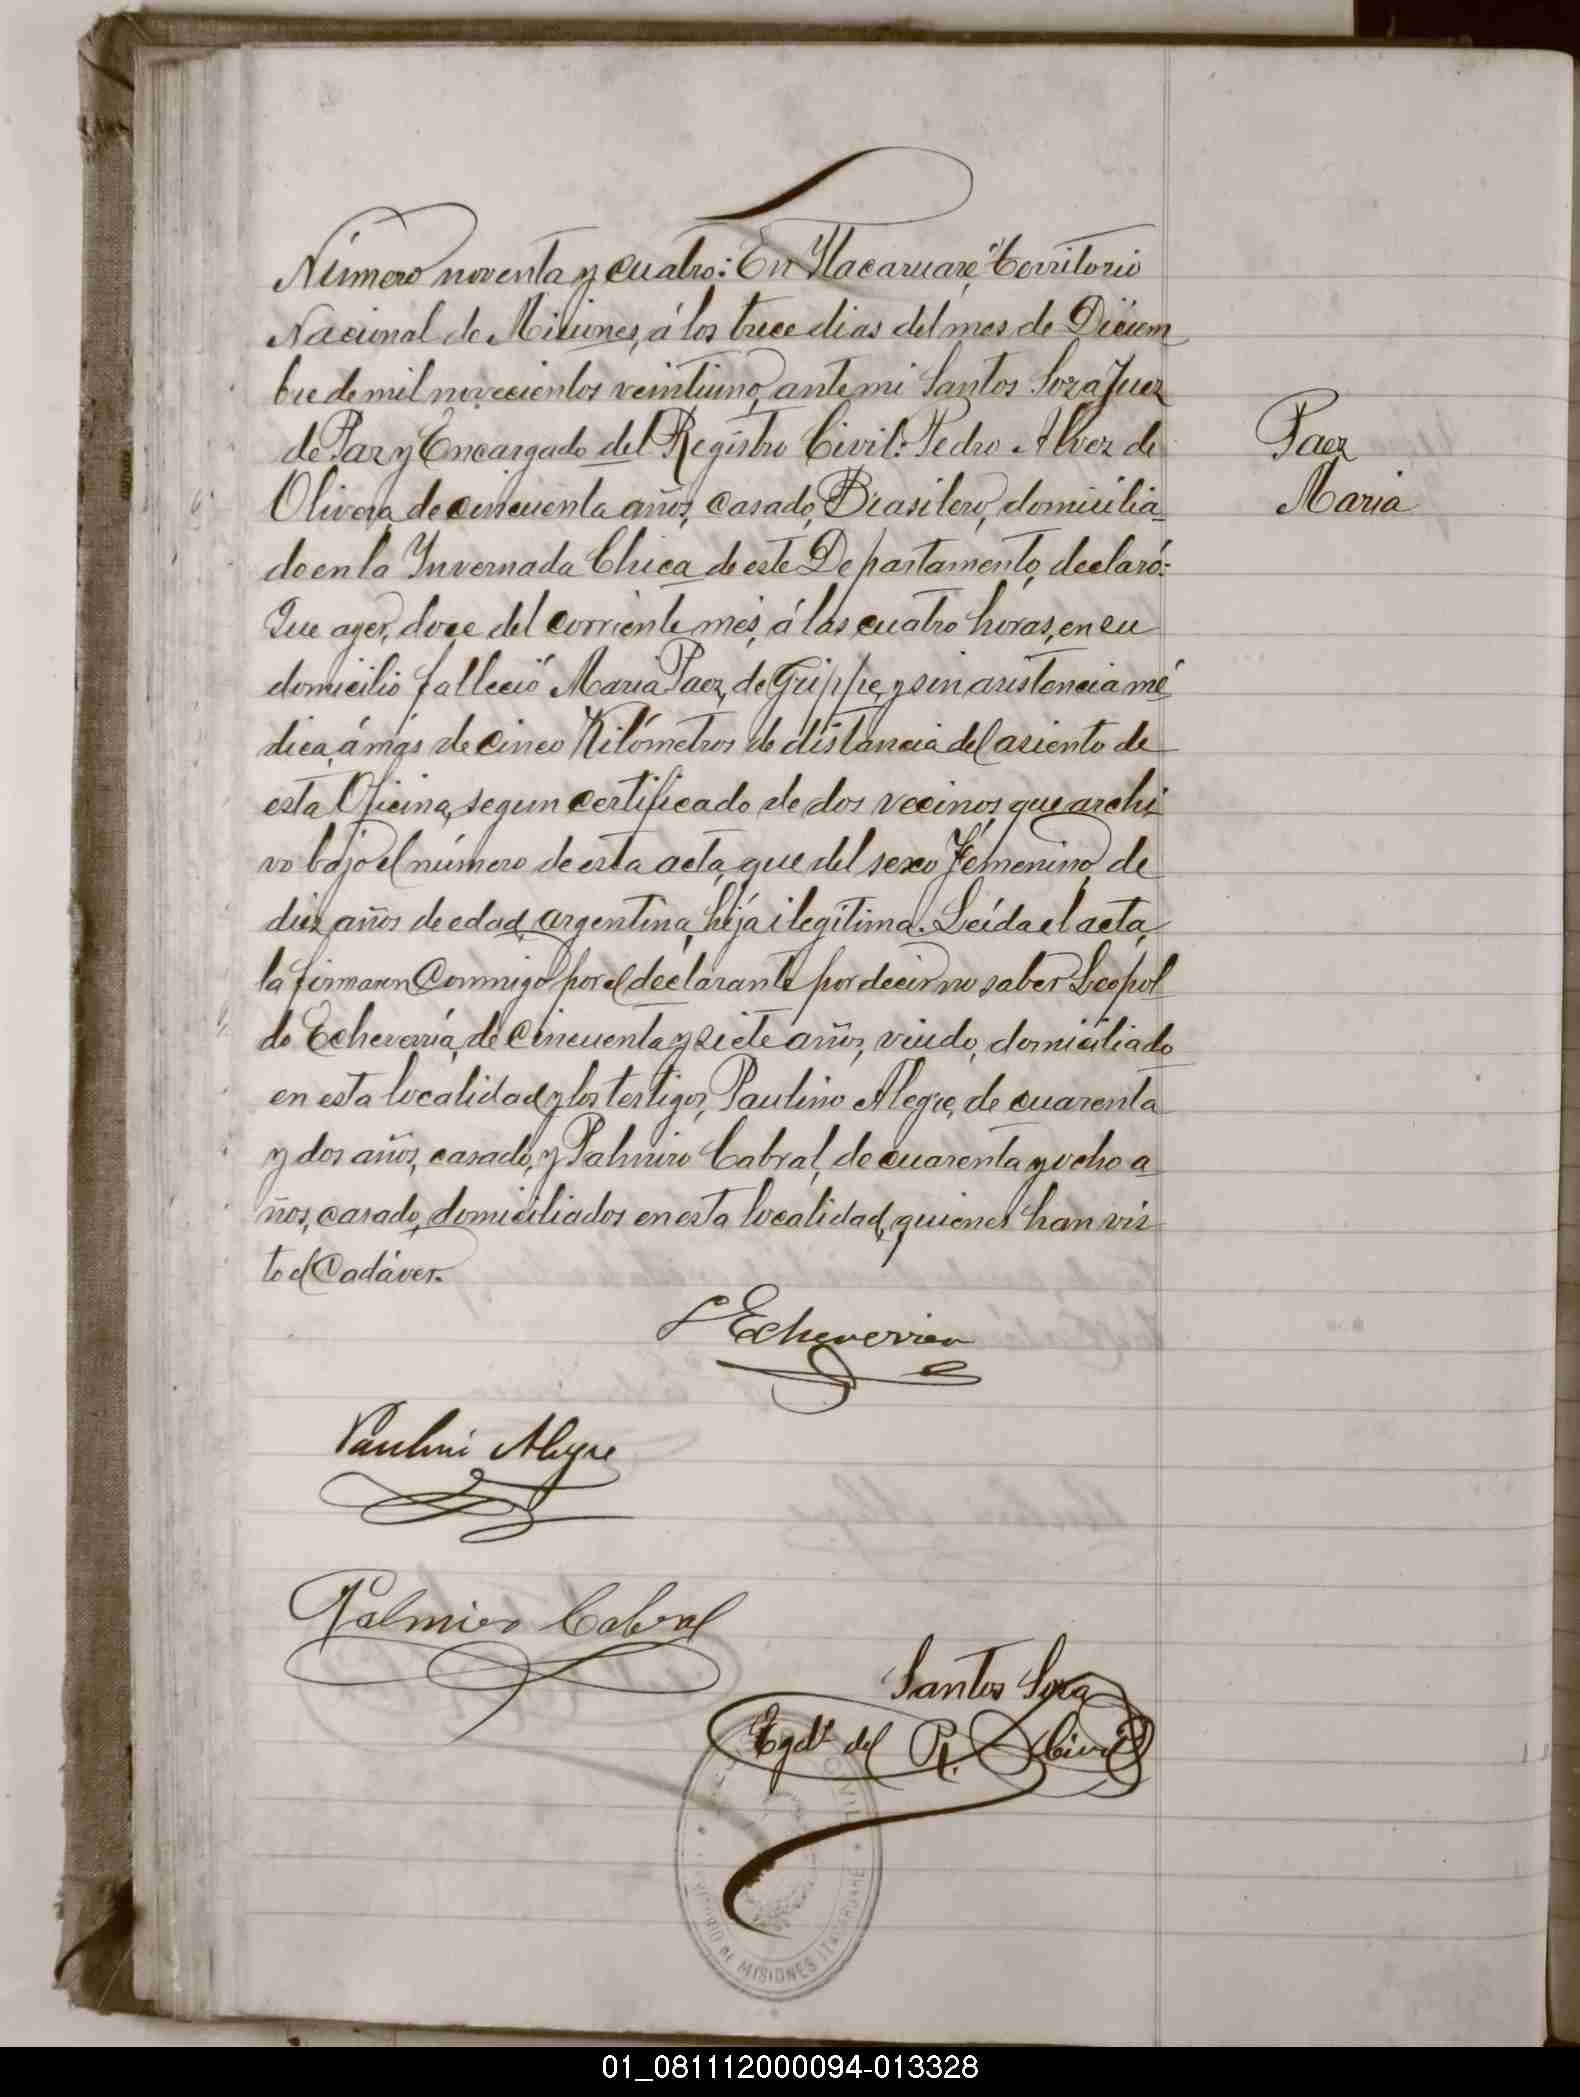 Número noventa y cuatro: En Ytacaruaré, Territorio
Nacional de Misiones, á los trece dias del mes de Diciem
bre de mil novecientos veintiuno, ante mi Santos Soza Juez
de Paz y Encargado del Registro Civil: Pedro Alvez de
Olivera, de cincuenta años, casado, Brasilero, domicilia-
do en la Ynvernada Chica de este Departamento, declaró:
Que ayer, doce del corriente mes, á las cuatro horas, en su
domicilio falleció Maria Paez, de Grippe, y sin asistencia mé
dica, á más de cinco Kilómetros de distancia del asiento de
esta Oficina, segun certificado de dos vecinos, que archi-
vo bajo el número de esta acta, que del sexo Femenino, de
diez años de edad, argentina, hija ilegítima. Leída el acta,
la firmaron Conmigo por el declarante por decir no saber Leopol
do Echeverría, de cincuenta y siete años, viudo, domiciliado
en esta localidad y los testigos, Paulino Alegre, de cuarenta
y dos años, casado, y Palmiro Cabral, de cuarenta y ocho a
ños, casado, domiciliados en esta localidad, quienes han vis
to el Cadáver.
Paez
Maria
L Echeverria
Paulino Alegre
Palmiro Cabral
Santos Soza
Egdo del R. Civil
CIVIL
MISIONES ITACARUARE
01_081112000094-013328